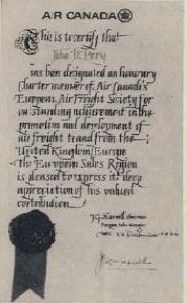 AIR CANADA
This is to certify that
has been designated an honorary
Charter member of Air Canada's
European Air Freight Society for
outstanding achievement in the
promotion and development of
air freight transit from the
United Kingdom/Europe
The European Sales Region
is pleased to express its deep
appreciation of his valued
contribution